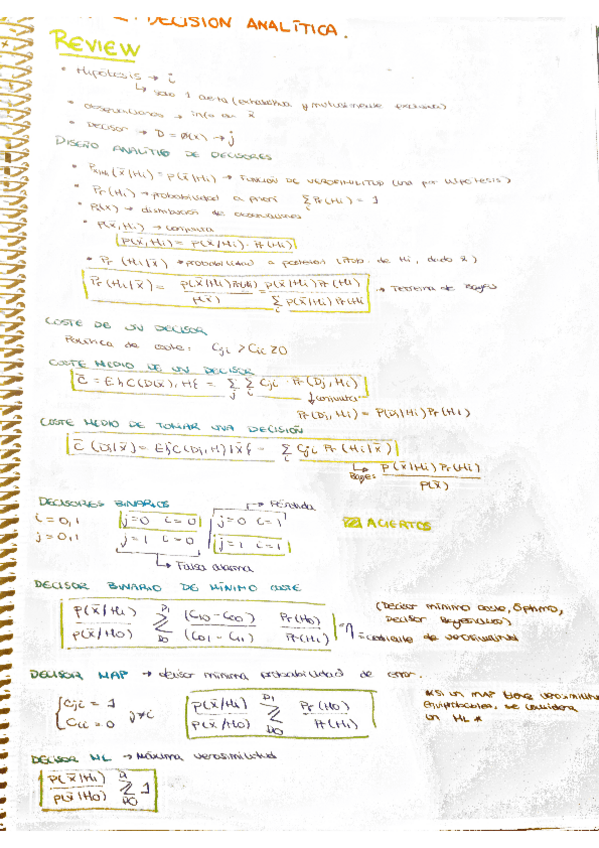 DECISIÓN ANALÍTICA.
REVIEW
• Hipótesis → i
↳ solo 1 cierta (exhaustiva y mutuamente excluyente)
• observaciones → info en x̄
• Decisor → D = Ø(x) → j
DISEÑO ANALÍTICO DE DECISORES
• P_X|Hi (x̄|Hi) = p(x̄|Hi) → FUNCIÓN DE VEROSIMILITUD (una por Hipótesis)
• Pr(Hi) → probabilidad a priori Σi Pr(Hi) = 1
• P(X) → distribución de observaciones
• p(x̄, Hi) → conjunta
p(x̄, Hi) = p(x̄/Hi) · Pr(Hi)
• Pr (Hi|x̄) → probabilidad a posteriori (Prob. de Hi, dado x̄)
Pr(Hi|x̄) = p(x̄/Hi)Pr(Hi) / p(x̄) = p(x̄/Hi) Pr(Hi) / Σi p(x̄/Hi) Pr(Hi) → Teorema de Bayes
COSTE DE UN DECISOR
Política de coste: Cji > Cii ≥ 0
COSTE MEDIO DE UN DECISOR
C̄ = E{C(D(x̄), H} = Σj Σi Cji · Pr(Dj, Hi)
↓ conjunta
Pr(Dj, Hi) = P(Dj|Hi) Pr(Hi)
COSTE MEDIO DE TOMAR UNA DECISIÓN
C̄ (Dj|x̄) = E{C(Dj, H)|x̄} = Σi Cji Pr (Hi|x̄)
↳ Bayes P(x̄|Hi) Pr(Hi) / P(x̄)
DECISORES BINARIOS → Pérdida
i = 0,1 j=0 i=0 j=0 i=1 ACIERTOS
j = 0,1 j=1 i=0 j=1 i=1
↳ Falsa alarma
DECISOR BINARIO DE MÍNIMO COSTE
p(x̄/H1) / p(x̄/H0) ≷ D1 D0 (C10 - C00) / (C01 - C11) Pr(H0) / Pr(H1) = η = cociente de verosimilitud
(Decisor mínimo coste, óptimo,
Decisor Bayesiano)
DECISOR MAP → decisor mínima probabilidad de error.
{ Cji = 1 Cii = 0 j≠i p(x̄/H1) / p(x̄/H0) ≷ D1 D0 Pr(H0) / Pr(H1)
*Si un MAP tiene verosimilitud
equiprobables, se considera
un ML *
DECISOR ML → Máxima verosimilitud
p(x̄|H1) / p(x̄|H0) ≷ D1 D0 1